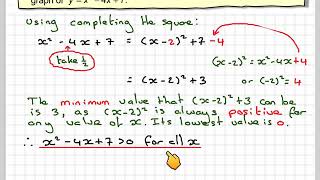 graph of y = x² - 4x + 7.
Using completing the square:
x² - 4x + 7 = (x-2)² + 7 - 4
take ½
(x-2)² = x² - 4x + 4
= (x-2)² + 3 or (-2)² = 4
The minimum value that (x-2)² + 3 can be
is 3, as (x-2)² is always positive for
any value of x. Its lowest value is 0.
∴ x² - 4x + 7 > 0 for all x